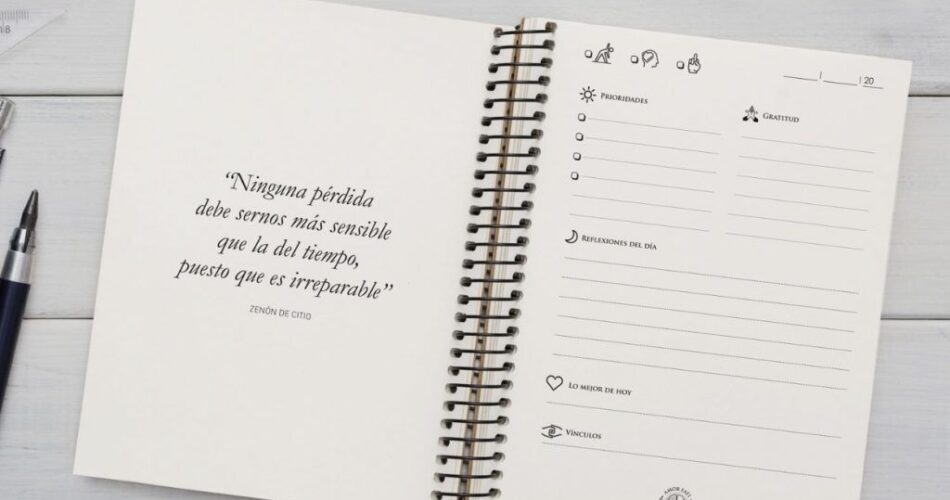 “Ninguna pérdida
debe sernos más sensible
que la del tiempo,
puesto que es irreparable”
ZENÓN DE CITIO
20
PRIORIDADES
GRATITUD
REFLEXIONES DEL DÍA
LO MEJOR DE HOY
VÍNCULOS
AMOR FATI
8